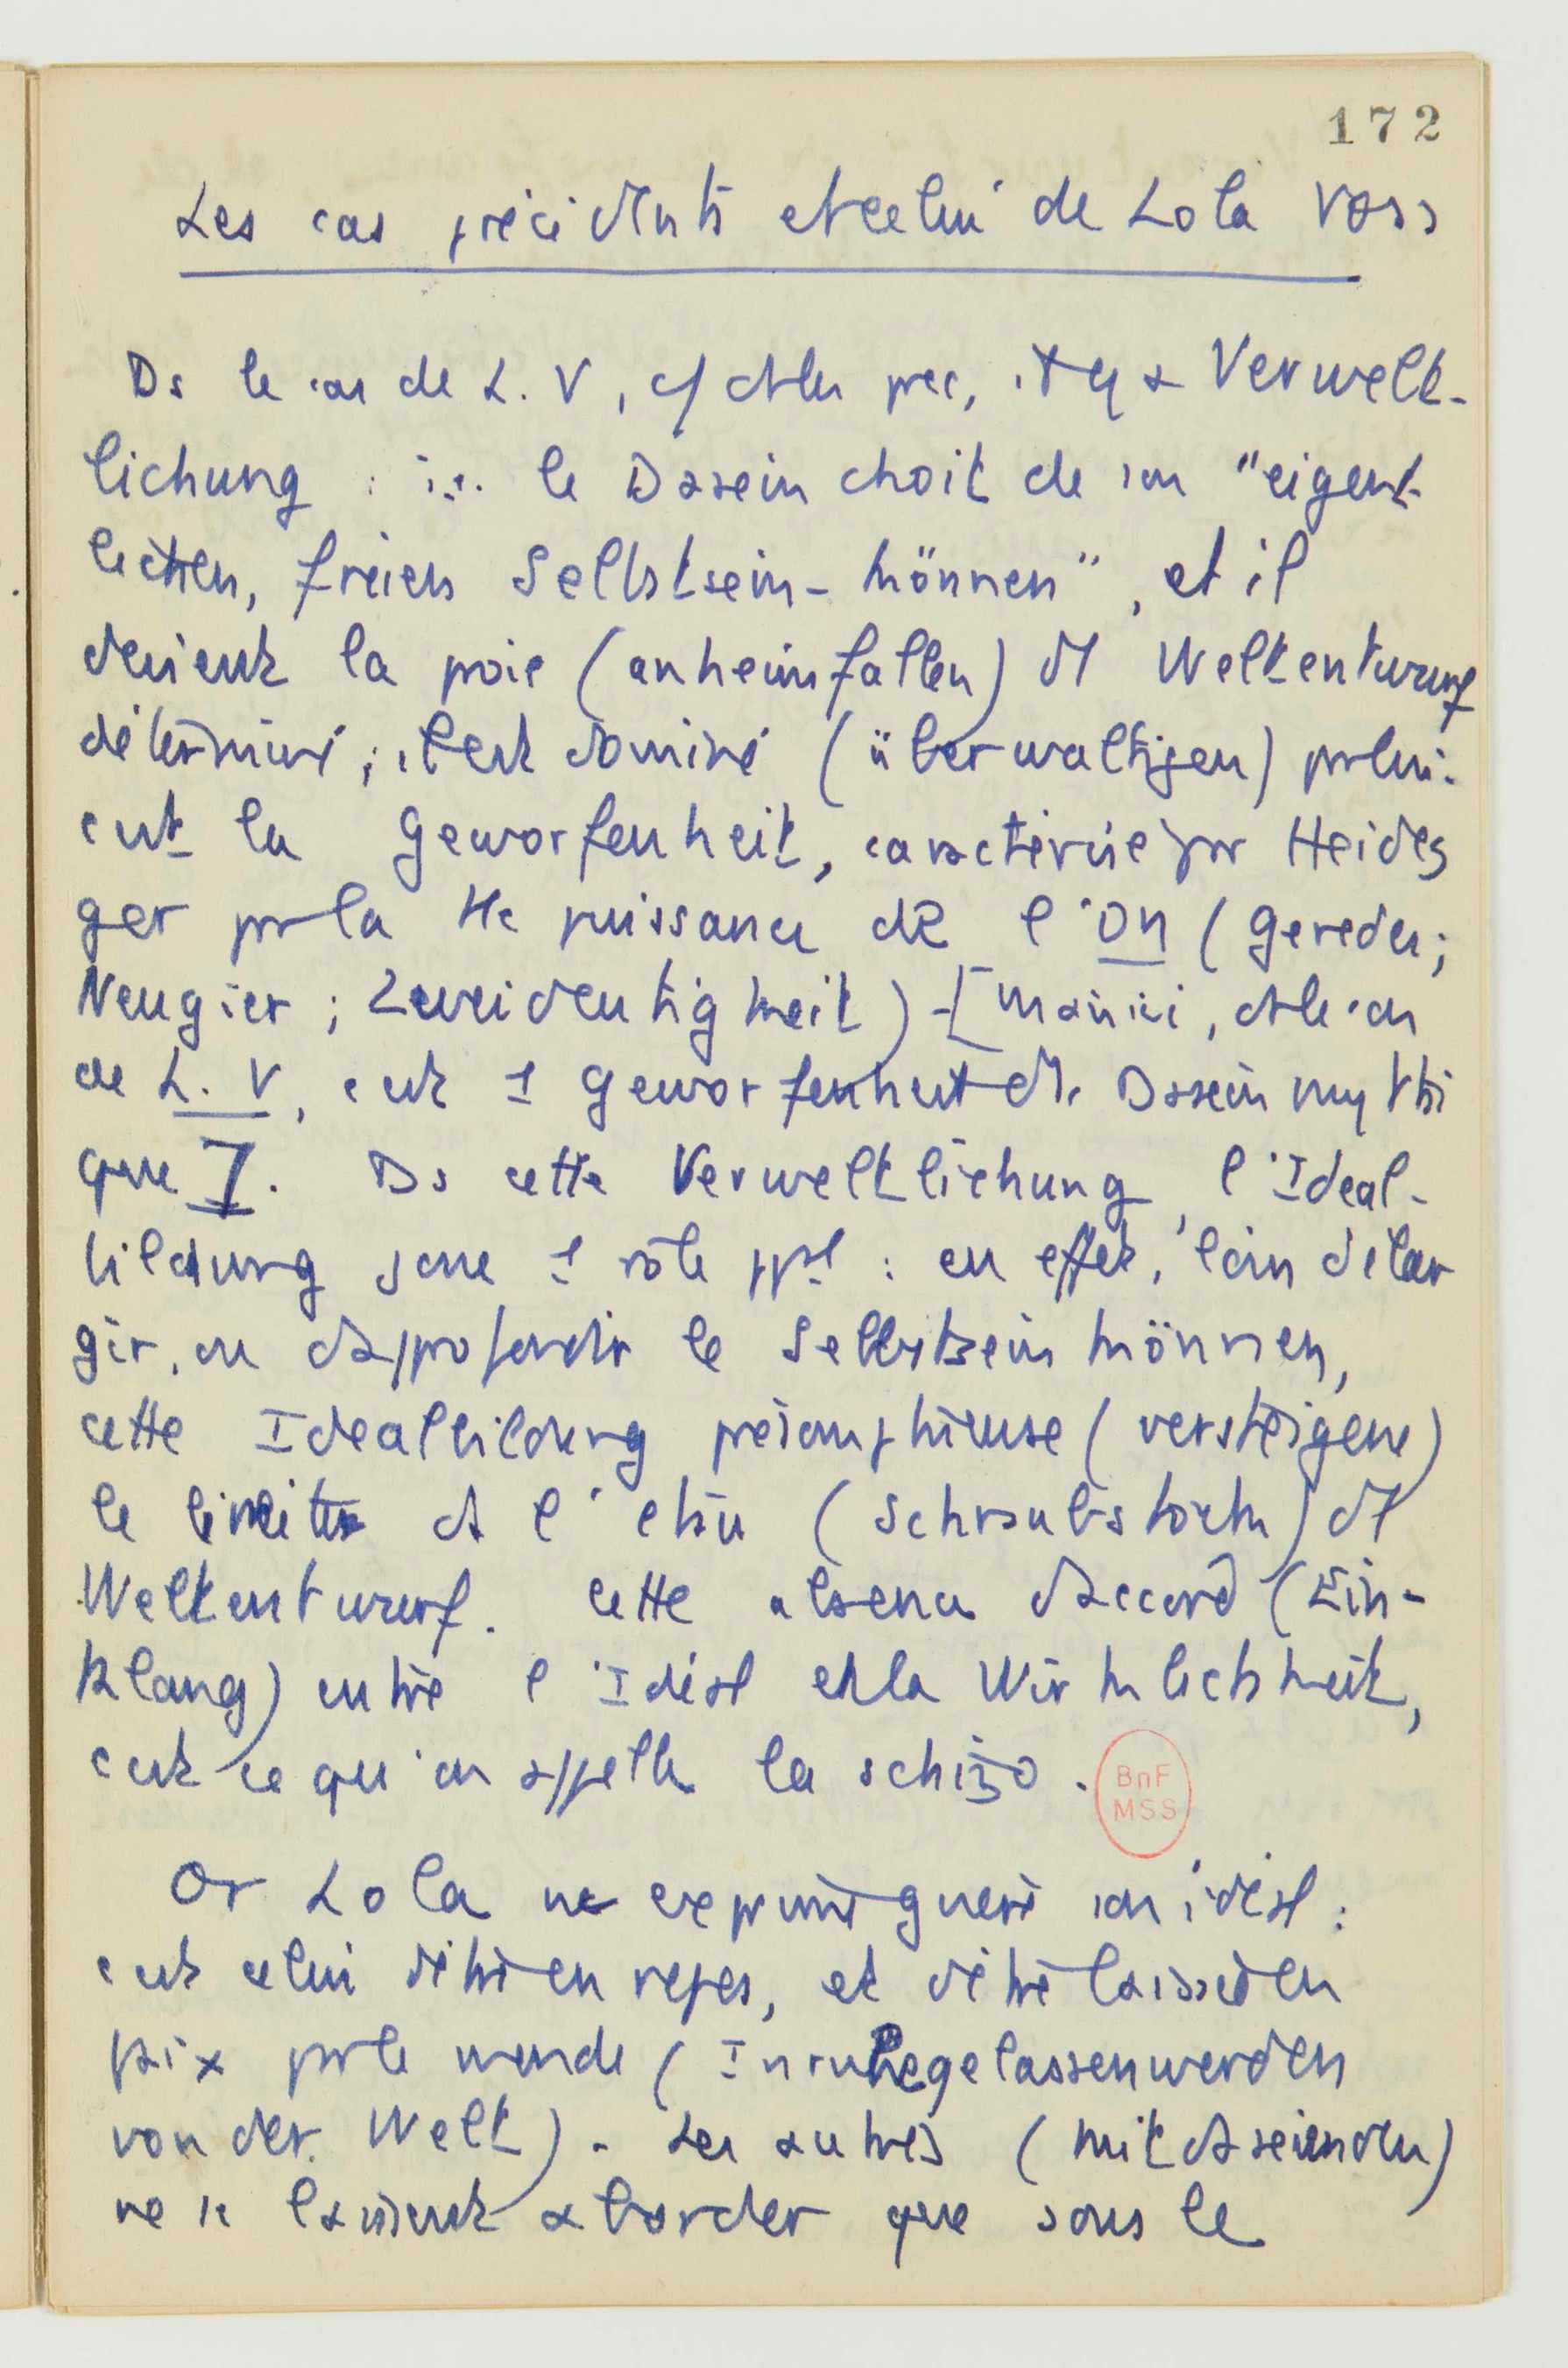 172
Les cas précédents et celui de Lola Voss
Ds le cas de L. V, c/ ds les prec, il y a Verwelt-
lichung : i.e. le Dasein choit de son "eigent
lichen, freien Selbstsein-können", et il
devient la proie (anheimfallen) d'1 Weltentwurf
déterminé ; il est dominé (überwaltigen) par lui.
c'est la Geworfenheit, caractérisée par Heideg
ger par la tte puissance de l'On (Gereden ;
Neugier ; Zweideutigkeit) - [mais ici, ds le cas
de L. V, c'est 1 Geworfenheit ds Dasein mythi
que]. Ds cette Verweltlichung, l'Ideal-
bildung joue 1 rôle ppal : en effet, loin d'élar
gir, ou d'approfondir le Selbstseinkönnen,
cette Idealbildung présomptueuse (versteigene)
le limite à l'étau (Schraubstock) d'1
Weltentwurf. Cette absence d'accord (Ein-
klang) entre l'Idéal et la Wirklichkeit,
c'est ce qu'on appelle la schizo.
BnF
MSS
Or Lola ne exprime guère son idéal :
c'est celui d'être en repos, et d'être laissée en
paix par le monde (Inruhegelassenwerden
von der Welt). Les autres (mitdaseienden)
ne se laissent aborder que sous le